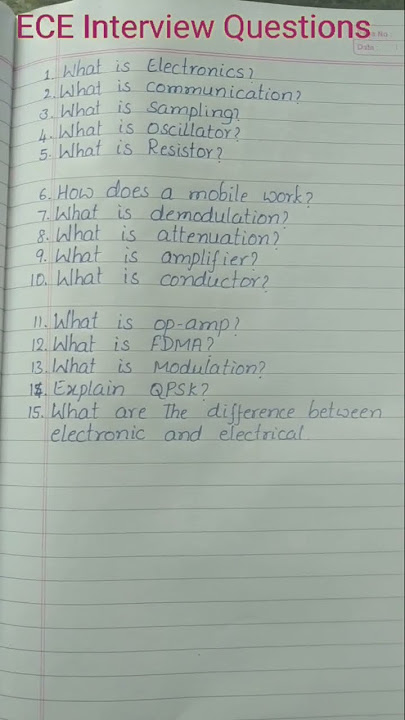 ECE Interview Questions
Date
1. What is Electronics?
2. What is communication?
3. What is sampling?
4. What is oscillator?
5. What is Resistor?
6. How does a mobile work?
7. What is demodulation?
8. What is attenuation?
9. What is amplifier?
10. What is conductor?
11. What is op-amp?
12. What is FDMA?
13. What is Modulation?
14. Explain QPSK?
15. What are The difference between
electronic and electrical.